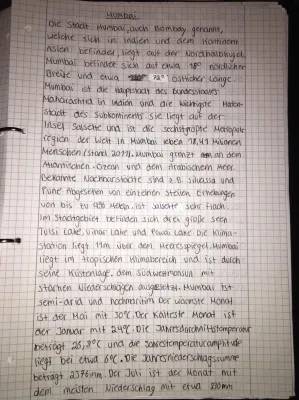 Mumbai
Die Stadt Mumbai, auch Bombay genannt,
welche sich in Indien und dem Kontinent
Asien befindet, liegt auf der Nordhalbkugel.
Mumbai befindet sich auf etwa 18° nördlicher
Breite und etwa 72° östlicher Länge.
Mumbai ist die Hauptstadt des Bundesstaates
Maharashtra in Indien und die wichtigste Hafen-
stadt des Subkontinents. Sie liegt auf der
Insel Salsette und ist die sechstgrößte Metropol-
region der Welt. In Mumbai leben 18,41 Millionen
Menschen (Stand 2011). Mumbai grenzt an dem
Atlantischen-Ozean und dem Arabischem Meer.
Bekannte Nachbarstädte sind z.B. Silvassa und
Pune. Abgesehen von einzelnen steilen Erhebungen
von bis zu Metern, ist Salsette sehr flach.
Im Stadtgebiet befinden sich drei große Seen
Tulsi Lake, Vihar Lake und Powai Lake. Die Klima-
station liegt 11m über dem Meeresspiegel. Mumbai
liegt im tropischen Klimabereich und ist durch
seine Küstenlage, dem Südwestmonsun mit
starken Niederschlägen ausgesetzt. Mumbai ist
semi-arid und hochmaritim. Der wärmste Monat
ist der Mai mit 30°C. Der Kälteste Monat ist
der Januar mit 24°C. Die Jahresdurchschnittstemperatur
beträgt 26,8°C und die Jahrestemperaturamplitude
liegt bei etwa 6°C. Die Jahresniederschlagssumme
beträgt mm. Der Juli ist der Monat mit
dem meisten Niederschlag mit etwa